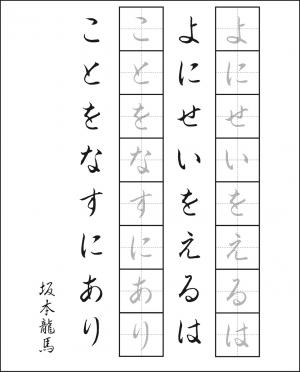 よにせいをえるは
よにせいをえるは
ことをなすにあり
ことをなすにあり
坂本龍馬